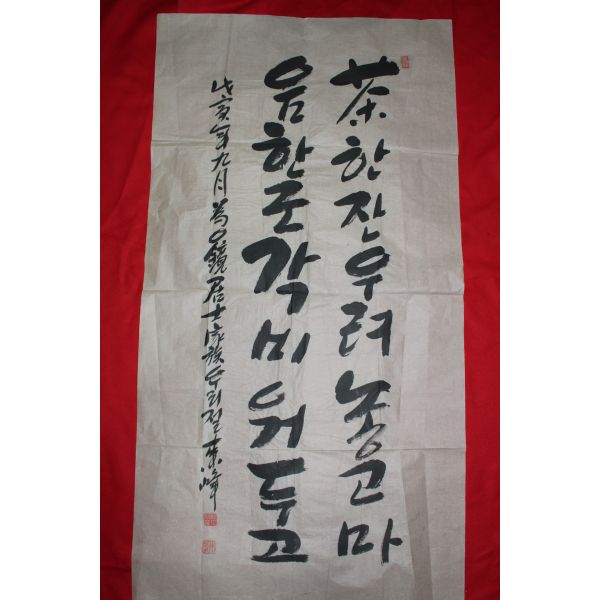 茶한잔우려놓고마
음한조각비워두고
戊亥年九月 為 鏡居士家族 우리절 東峰